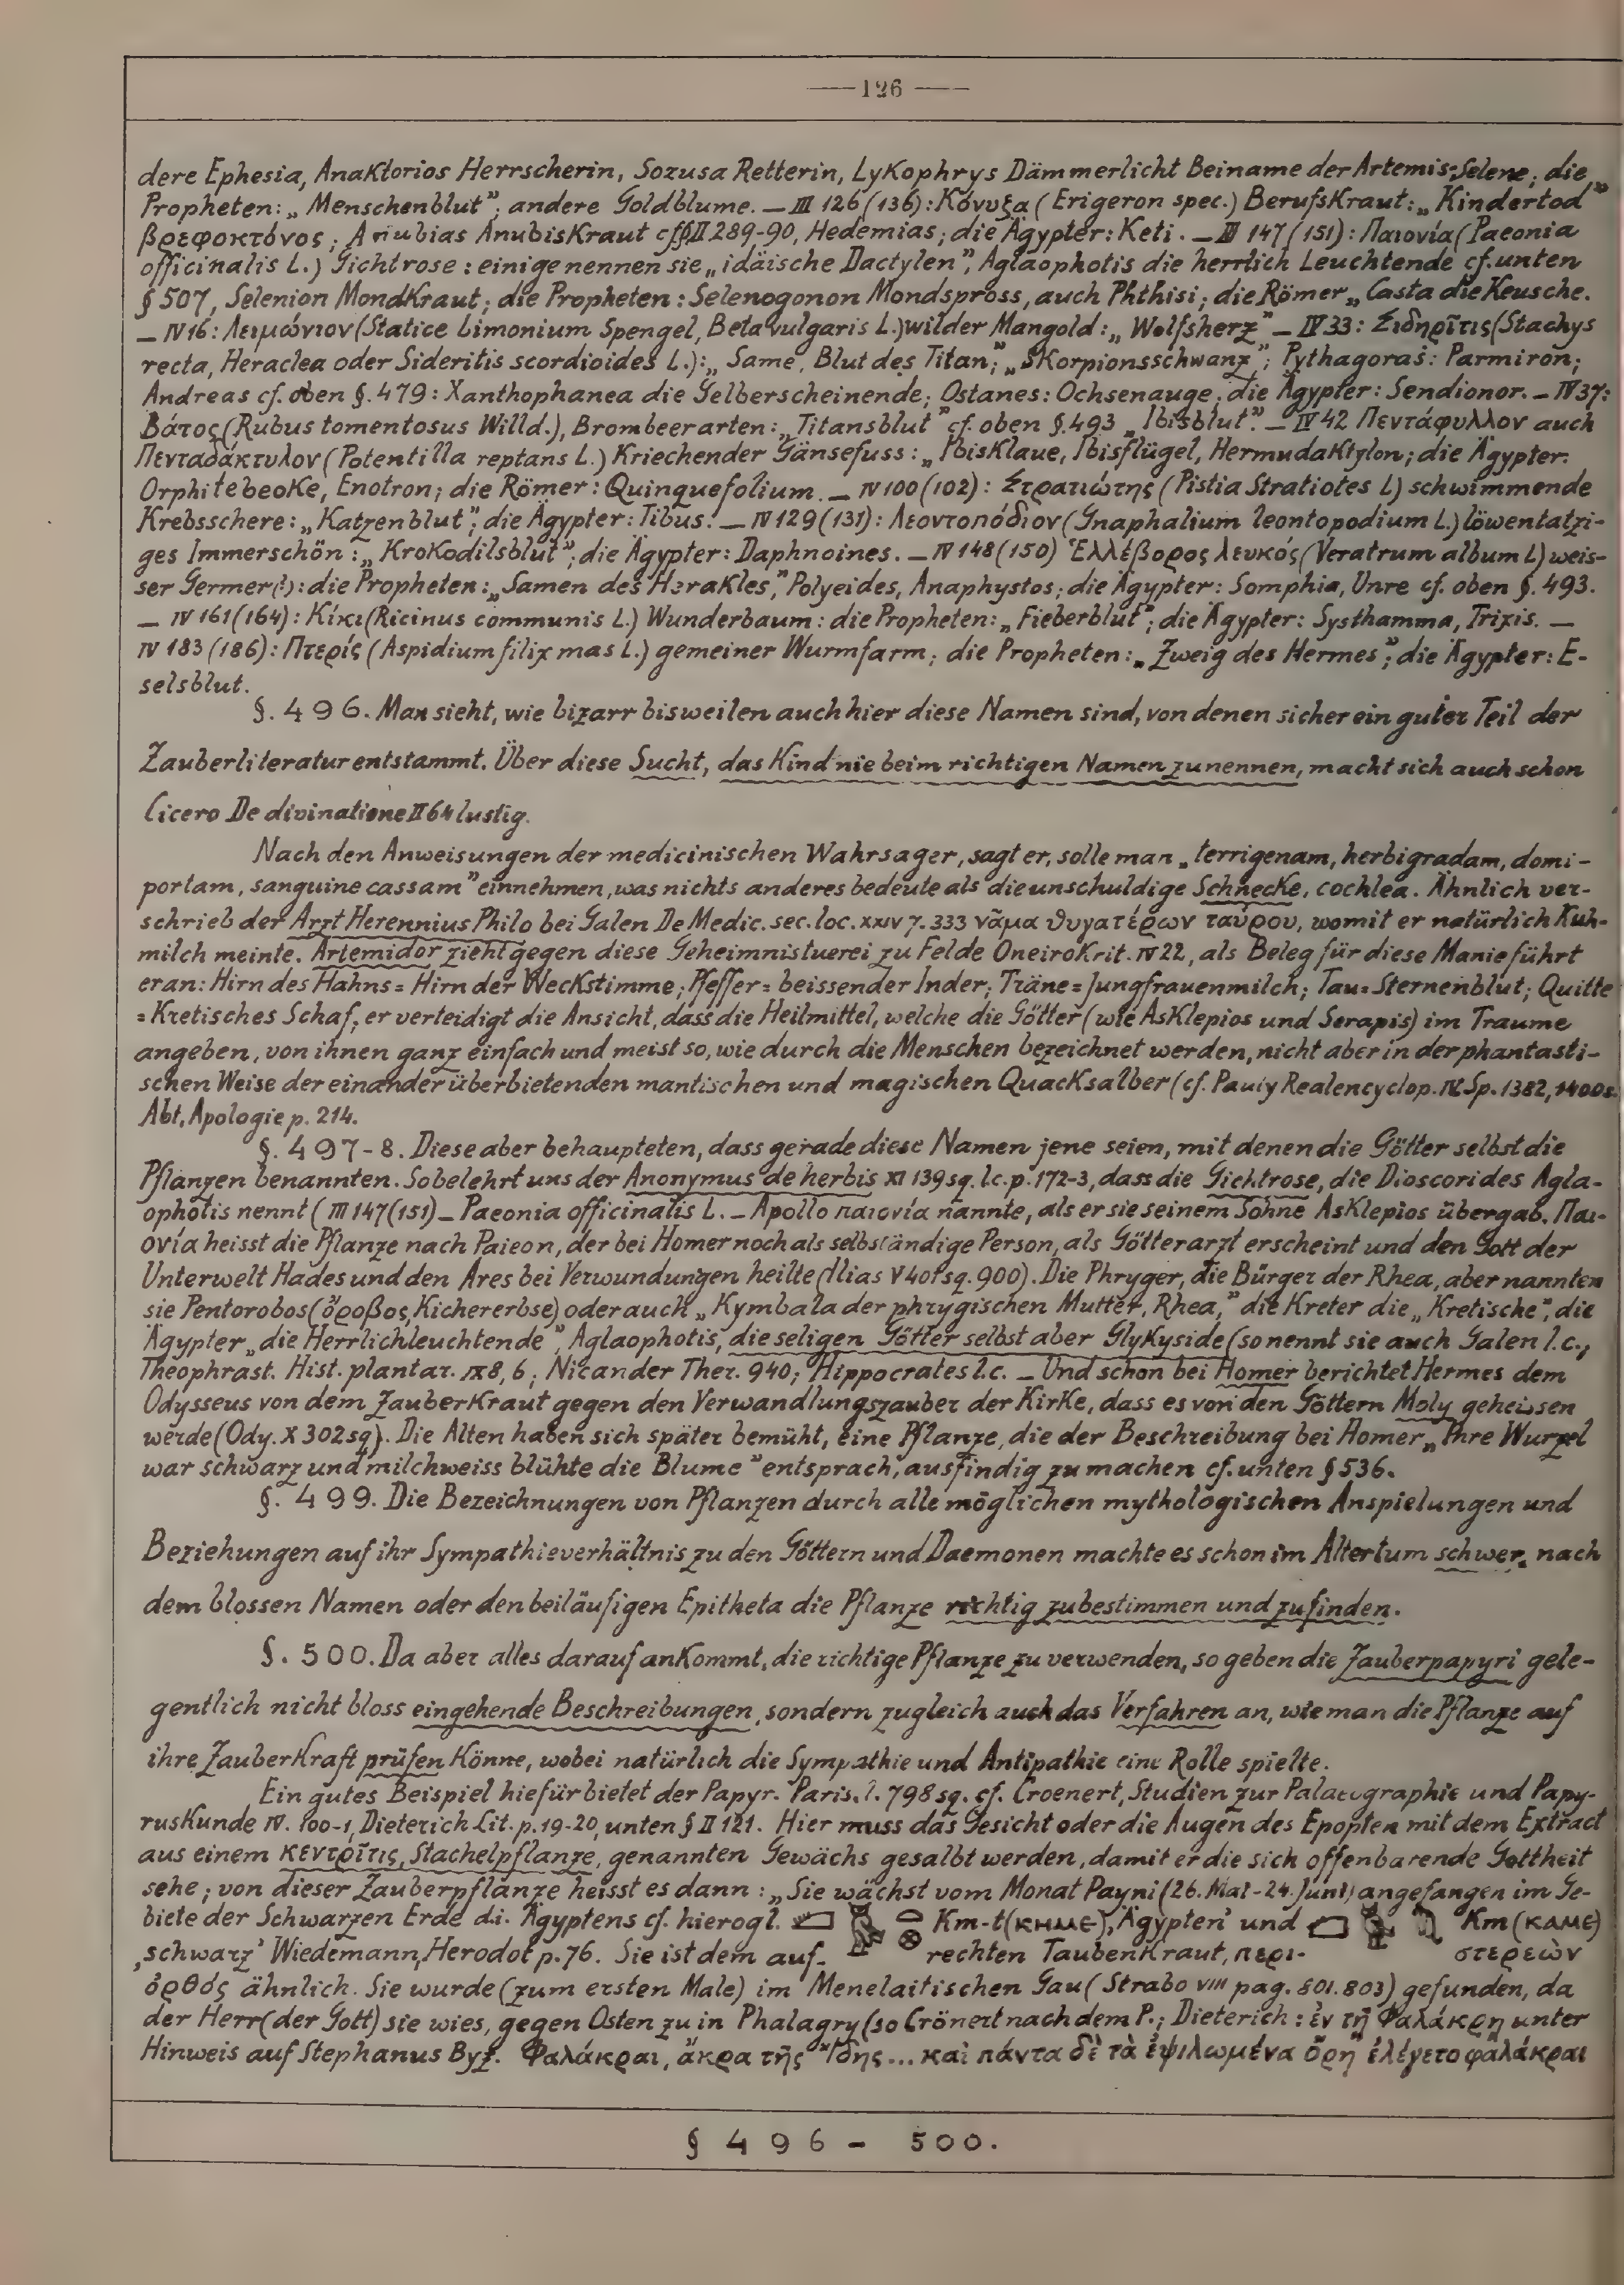 —126—
dere Ephesia, Anaktorios Herrscherin, Sozusa Retterin, Lykophrys Dämmerlicht Beiname der Artemis-Selene; die
Propheten: „Menschenblut”; andere Goldblume. — III 126 (136): Κόνυζα (Erigeron spec.) Berufskraut: „Kindertod”
βρεφοκτόνος; Anubias Anubiskraut cf. § II 289-90, Hedemias; die Ägypter: Keti. — III 147 (151): Παιονία (Paeonia
officinalis L.) Gichtrose: einige nennen sie „idäische Dactylen”, Aglaophotis die herrlich Leuchtende cf. unten
§ 507, Selenion Mondkraut; die Propheten: Selenogonon Mondspross, auch Phthisi; die Römer „Casta die Keusche.
— IV 16: Λειμώνιον (Statice Limonium Spengel, Beta vulgaris L.) wilder Mangold: „Wolfsherz” — IV 33: Σιδηρῖτις (Stachys
recta, Heraclea oder Sideritis scordioides L.): „Same, Blut des Titan;” „Skorpionsschwanz”; Pythagoras: Parmiron;
Andreas cf. oben §. 479: Xanthophanea die Gelberscheinende; Ostanes: Ochsenauge; die Ägypter: Sendionor. — IV 37:
Βάτος (Rubus tomentosus Willd.), Brombeerarten: „Titansblut” cf. oben §. 493 „Ibisblut”. — IV 42 Πεντάφυλλον auch
Πενταδάκτυλον (Potentilla reptans L.) Kriechender Gänsefuss: „Ibisklaue, Ibisflügel, Hermudaktylon; die Ägypter:
Orphitebeoke, Enotron; die Römer: Quinquefolium. — IV 100 (102): Στρατιώτης (Pistia Stratiotes L) schwimmende
Krebsschere: „Katzenblut”; die Ägypter: Tibus. — IV 129 (131): Λεοντοπόδιον (Gnaphalium leontopodium L.) löwentatzi-
ges Immerschön: „Krokodilsblut”; die Ägypter: Daphnoines. — IV 148 (150) Ἑλλέβορος λευκός (Veratrum album L) weis-
ser Germer (?): die Propheten: „Samen des Herakles,” Polyeides, Anaphystos; die Ägypter: Somphia, Unre cf. oben §. 493.
— IV 161 (164): Κίκι (Ricinus communis L.) Wunderbaum: die Propheten: „Fieberblut”; die Ägypter: Systhamma, Trixis. —
IV 183 (186): Πτερίς (Aspidium filix mas L.) gemeiner Wurmfarm; die Propheten: „Zweig des Hermes”; die Ägypter: E-
selsblut.
§. 496. Man sieht, wie bizarr bisweilen auch hier diese Namen sind, von denen sicher ein guter Teil der
Zauberliteratur entstammt. Über diese Sucht, das Kind nie beim richtigen Namen zu nennen, macht sich auch schon
Cicero De divinatione II 64 lustig.
Nach den Anweisungen der medicinischen Wahrsager, sagt er, solle man „terrigenam, herbigradam, domi-
portam, sanguine cassam” einnehmen, was nichts anderes bedeute als die unschuldige Schnecke, cochlea. Ähnlich ver-
schrieb der Arzt Herennius Philo bei Galen De Medic. sec. loc. XXIV 7. 333 νᾶμα θυγατέρων ταύρου, womit er natürlich Kuh-
milch meinte. Artemidor zieht gegen diese Geheimnistuerei zu Felde Oneirokrit. IV 22, als Beleg für diese Manie führt
er an: Hirn des Hahns = Hirn der Weckstimme; Pfeffer = beissender Inder; Träne = Jungfrauenmilch; Tau = Sternenblut; Quitte
= Kretisches Schaf; er verteidigt die Ansicht, dass die Heilmittel, welche die Götter (wie Asklepios und Serapis) im Traume
angeben, von ihnen ganz einfach und meist so, wie durch die Menschen bezeichnet werden, nicht aber in der phantasti-
schen Weise der einander überbietenden mantischen und magischen Quacksalber (cf. Pauly Realencyclop. IV. Sp. 1382, 1400s.
Abt, Apologie p. 214.
§. 497-8. Diese aber behaupteten, dass gerade diese Namen jene seien, mit denen die Götter selbst die
Pflanzen benannten. So belehrt uns der Anonymus de herbis XI 139 sq. l.c. p. 172-3, dass die Gichtrose, die Dioscorides Agla-
ophotis nennt (III 147 (151) – Paeonia officinalis L. – Apollo παιονία nannte, als er sie seinem Sohne Asklepios übergab. Παι-
ονία heisst die Pflanze nach Paieon, der bei Homer noch als selbständige Person, als Götterarzt erscheint und den Gott der
Unterwelt Hades und den Ares bei Verwundungen heilte (Ilias V 401 sq. 900). Die Phryger, die Bürger der Rhea, aber nannten
sie Pentorobos (ὄροβος, Kichererbse) oder auch „Kymbala der phrygischen Mutter, Rhea,” die Kreter die „Kretische”, die
Ägypter „die Herrlichleuchtende”, Aglaophotis, die seligen Götter selbst aber Glykyside (so nennt sie auch Galen l.c.,
Theophrast. Hist. plantar. IX 8, 6; Nicander Ther. 940; Hippocrates l.c. — Und schon bei Homer berichtet Hermes dem
Odysseus von dem Zauberkraut gegen den Verwandlungszauber der Kirke, dass es von den Göttern Moly geheissen
werde (Ody. X 302 sq). Die Alten haben sich später bemüht, eine Pflanze, die der Beschreibung bei Homer „Ihre Wurzel
war schwarz und milchweiss blühte die Blume” entsprach, ausfindig zu machen cf. unten § 536.
§. 499. Die Bezeichnungen von Pflanzen durch alle möglichen mythologischen Anspielungen und
Beziehungen auf ihr Sympathieverhältnis zu den Göttern und Daemonen machte es schon im Altertum schwer, nach
dem blossen Namen oder den beiläufigen Epitheta die Pflanze richtig zu bestimmen und zu finden.
§. 500. Da aber alles darauf ankommt, die richtige Pflanze zu verwenden, so geben die Zauberpapyri gele-
gentlich nicht bloss eingehende Beschreibungen, sondern zugleich auch das Verfahren an, wie man die Pflanze auf
ihre Zauberkraft prüfen könne, wobei natürlich die Sympathie und Antipathie eine Rolle spielte.
Ein gutes Beispiel hiefür bietet der Papyr. Paris. l. 798 sq. cf. Croenert, Studien zur Palaeographie und Papy-
ruskunde IV. 100-1, Dieterich Lit. p. 19-20, unten § II 121. Hier muss das Gesicht oder die Augen des Epopten mit dem Extract
aus einem κεντρῖτις, Stachelpflanze, genannten Gewächs gesalbt werden, damit er die sich offenbarende Gottheit
sehe; von dieser Zauberpflanze heisst es dann: „Sie wächst vom Monat Payni (26. Mai - 24. Juni) angefangen im Ge-
biete der Schwarzen Erde d.i. Ägyptens cf. hierogl. Km-t (ⲕⲏⲙⲉ), ‚Ägypten’ und Km (ⲕⲁⲙⲉ)
‚schwarz’ Wiedemann, Herodot p. 76. Sie ist dem auf- rechten Taubenkraut, περι- στερεὼν
ὀρθός ähnlich. Sie wurde (zum ersten Male) im Menelaitischen Gau (Strabo VIII pag. 801. 803) gefunden, da
der Herr (der Gott) sie wies, gegen Osten zu in Phalagry (so Crönert nach dem P.; Dieterich: ἐν τῇ Φαλάκρῃ unter
Hinweis auf Stephanus Byz. Φαλάκραι, ἄκρα τῆς Ἴδης... καὶ πάντα δὲ τὰ ἐψιλωμένα ὄρη ἐλέγετο φαλάκραι
§ 496 - 500.